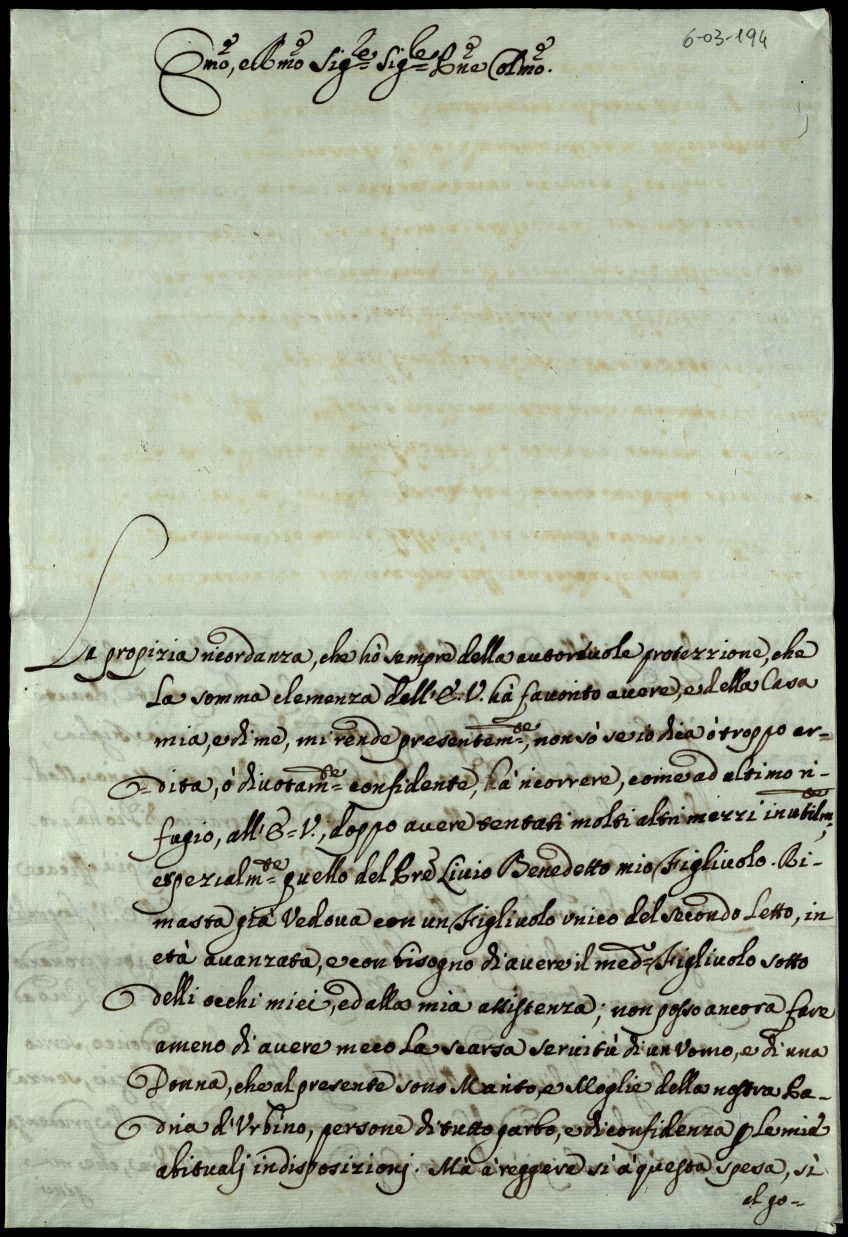 6-03-194
Emo, e Rmo Sigre Sigre Prne Colmo.
La propizia ricordanza, che hò sempre della autoreuole protezzione, che
La somma clemenza dell'E. V. hà fauorito auere, e della Casa
mia, e di me, mi rende presentemte, non sò se io dica ò troppo ar=
dita, ò diuotamte confidente, hà ricorrere, come ad altimo ri-
fugio, all'E. V., doppo auere tentati molti altri mezzi inutilmte,
e spezialmte quello del Pre Liuio Benedetto mio Figliuolo. Ri-
masta già Vedoua con un Figliuolo vnico del secondo Letto, in
età auanzata, e con bisogno di auere il med. Figliuolo sotto
delli occhi miei, ed alla mia assistenza; non posso ancora fare
ameno di auere meco La scarsa seruitù di un Vomo, e di una
Donna, che al presente sono Marito, e Moglie della nostra Pa-
dria d'Vrbino, persone di tutto garbo, e di confidenza p Le mie
abitualj indisposizionj. Mà à reggere sì à questa spesa, sì
al go-